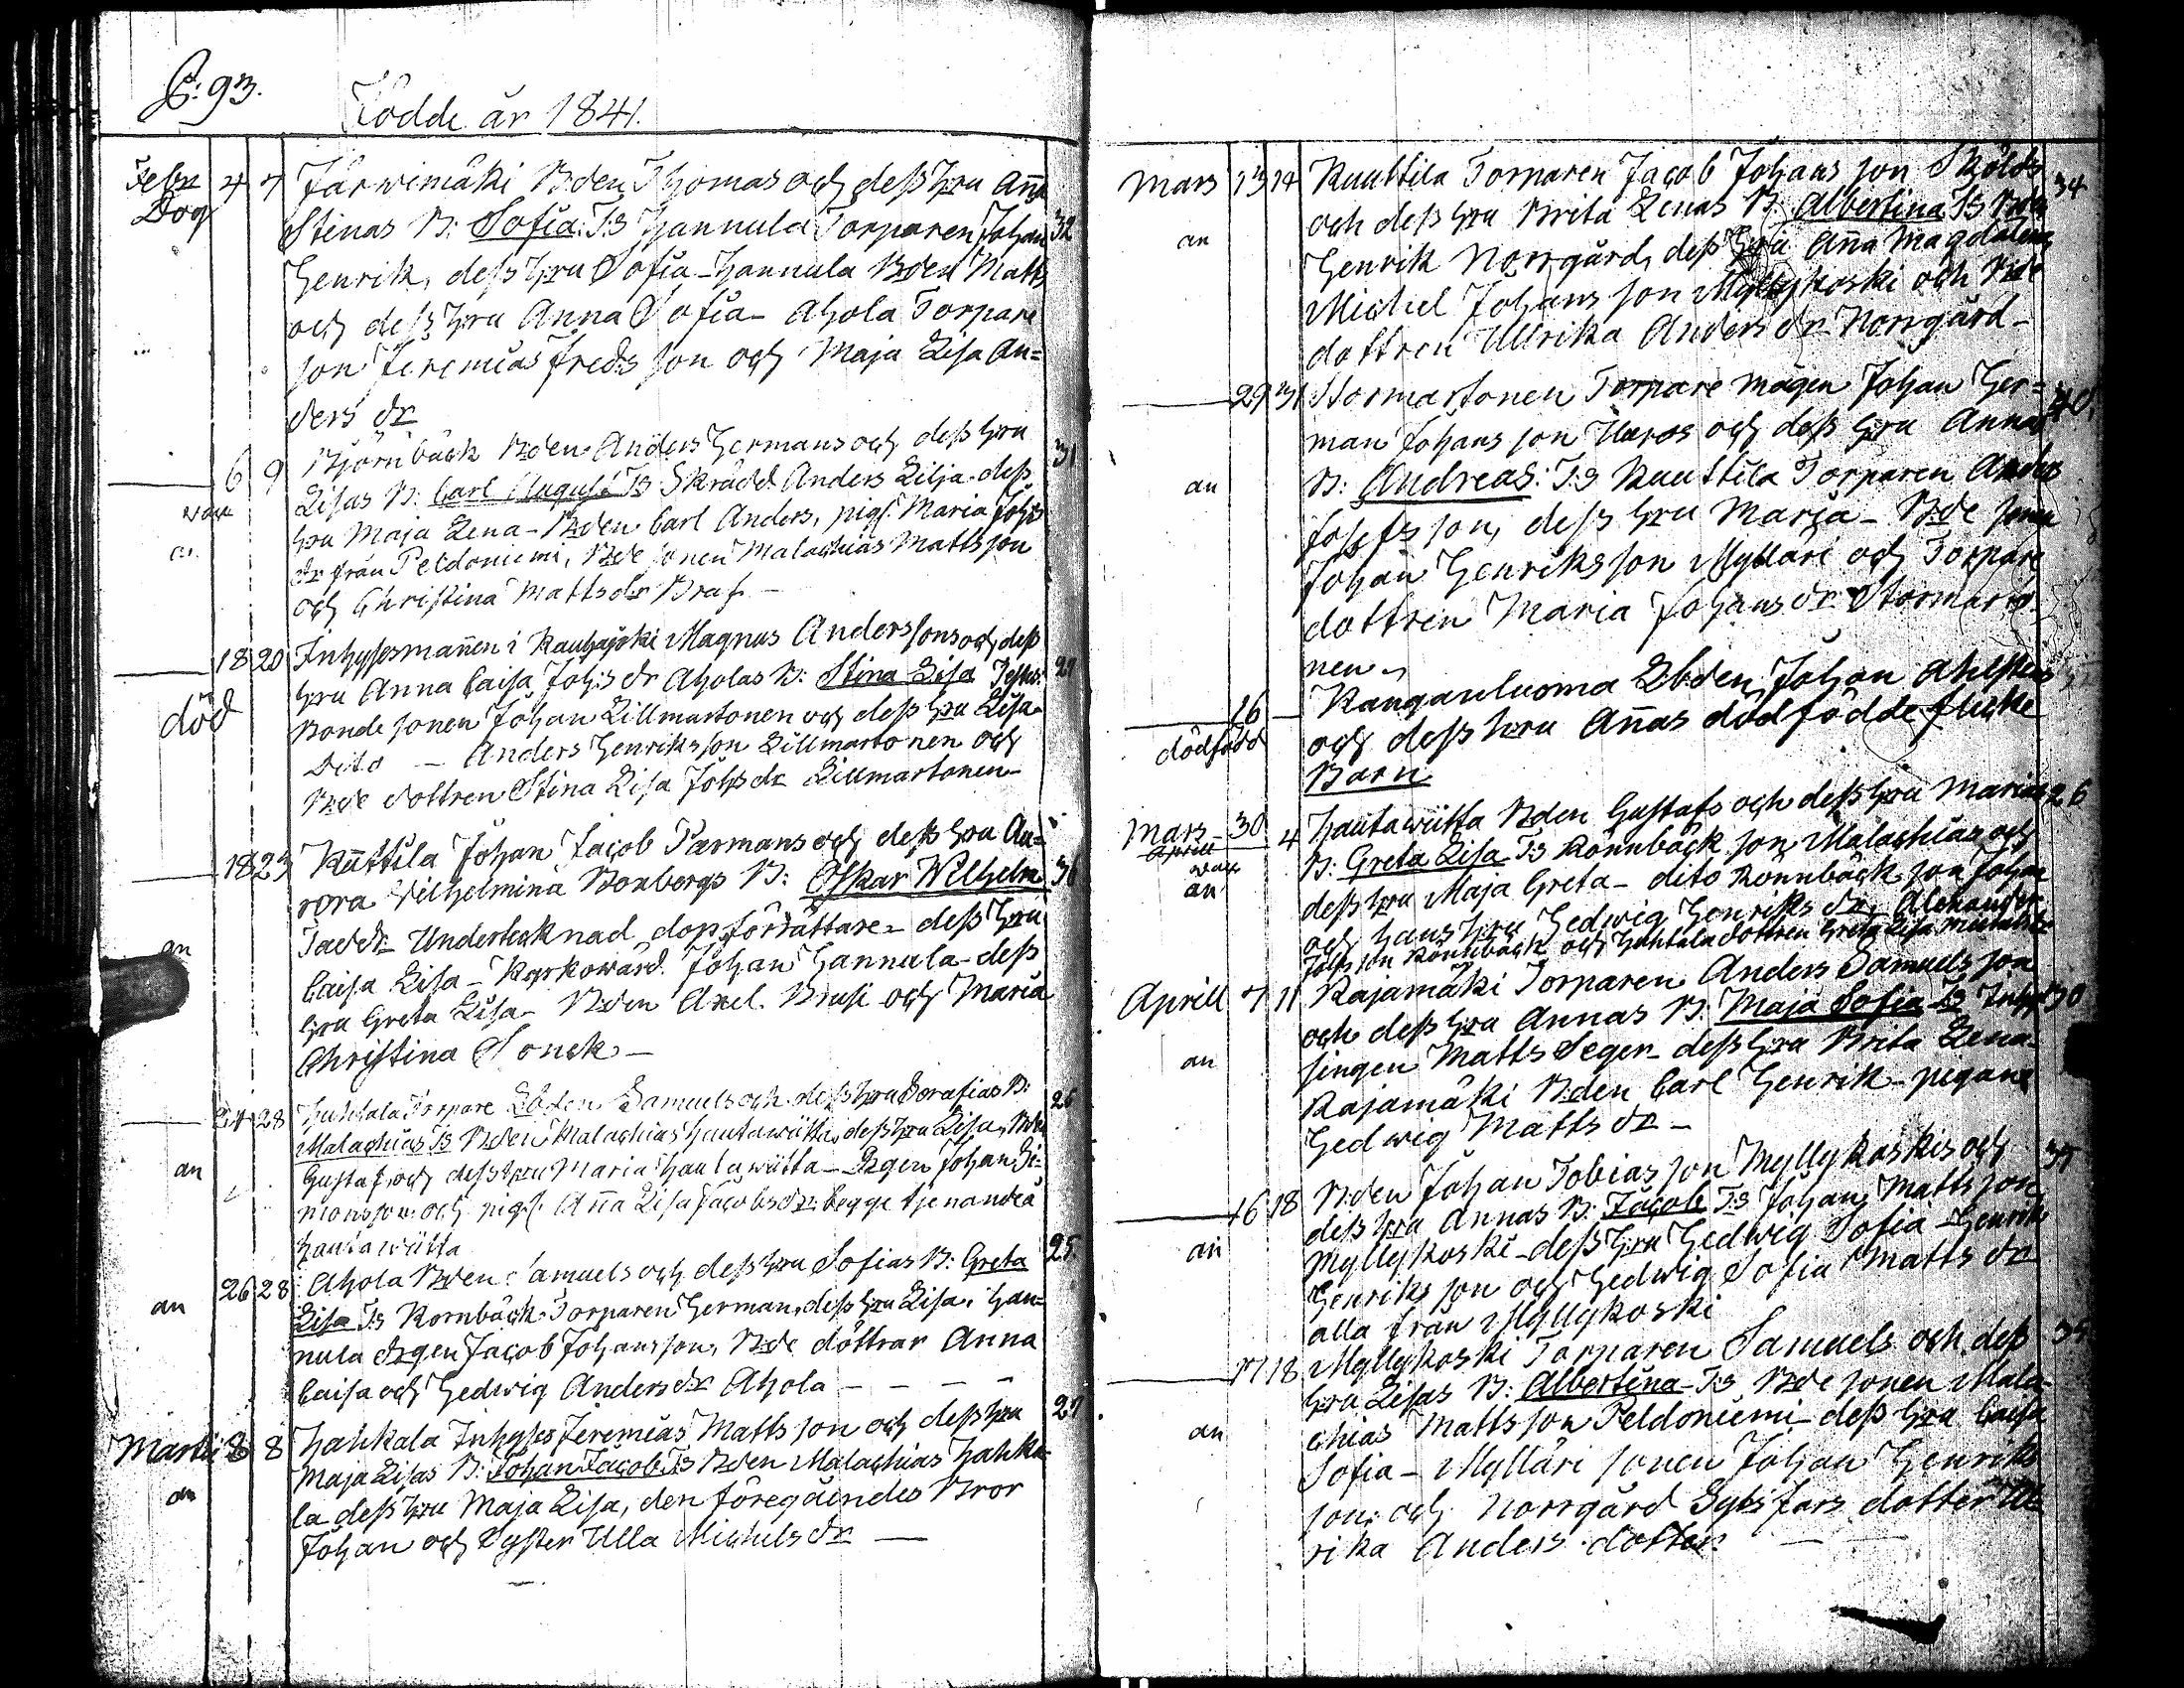 P: 93.
Födde år 1841.
Febr 4 7 Järwimäki Bden Thomas och dess hru Aña
Dog Stinas B: Sofia: T:s Hannula Torparen Johan 32
Henrik, dess hru Sofia - Hannula Bden Matts
och dess hru Anna Sofia - Ahola Torpare
son Jeremias Freds son och Maja Lisa An=
ders dr
6 9 Björnbäck Bden Anders Hermans och dess hru 31
Lisas B: Carl August T:s Skrädd. Anders Lilja - dess
hru Maja Lena - Bden Carl Anders, pig. Maria Johs
dr från Peldoniemi, Bde sonen Malachias Mattsson
och Christina Mattsdr Braf. -
18 20 Inhysesmañen i Kauhajoki Magnus Anderssons och dess
hru Anna Caisa Johs dr Aholas B: Stina Lisa Testes: 21
död Bonde sonen Johan Lillmartonen och dess hru Lisa
Dito - Anders Henriksson Lillmartonen och
Bde dottren Stina Lisa Johsdr Lillmartonen -
18 23 Kuttila Johan Jacob Pærmans och dess hru Au=
rora Vilhelmina Bonbergs B: Oskar Wilhelm 30
Taddr Undertecknad dopförrättare - dess hru
an Caisa Lisa - Kyrkowärd. Johan Hannula - dess
hru Greta Lisa - Bden Axel Brusi och Maria
Christina Sonck -
24 28 Huhtala Torpare Lbden Samuels och dess hru Sorafias B: 26
Malachias T:s Bden Malachias Hautawiitta, dess hru Lisa, Bden
an Gustaf, och dess hru Maria Hautawiitta - Drgen Johan Si=
monsson och pig. Aña Lisa Jacobsdr begge tjenande å
Hautawiitta
26 28 Ahola Bden Samuels och dess hru Sofias B: Greta 25
an Lisa T:s Kornbäck Torparen Herman, dess hru Lisa, Han=
nula drgen Jacob Johansson, Bde döttrar Anna
Caisa och Hedwig Andersdr Ahola - - - -
Martii 8 8 Hahkala Inhyses Jeremias Mattsson och dess hru 27
an Maja Lisas B: Johan Jacob T:s Bden Malachias Hahka=
la dess hru Maja Lisa, den föregåendes Bror
Johan och Syster Ulla Michelsdr -
Mars 13 14 Kuuttila Torparen Jacob Johans son Skölds 34
an och dess hru Brita Lenas B: Albertina T:s Bden
Henrik Norrgård, dess hru Aña Magdalena
Michel Johans son Myllykoski och Bde
dottren Ullrika Anders dr Norrgård -
29 31 Stormartonen Torpare mågen Johan Her= 40
man Johans son Uuros och dess hru Annas
an B: Andreas: T:s Kuuttila Torparen Anders
Josefs son, dess hru Maria - Bde sonen
Johan Henriksson Mylläri och Torpare
dottren Maria Johansdr Stormarto
nen -
16 - Kangasluoma Lbden Johan Ahlstens
dödfödd och dess hru Añas dödfödde flicke
Barn
Mars 30 4 Hautawiitta Bden Gustafs och dess hru Marias 26
April B: Greta Lisa T:s Rönnbäck son Malachias och
an dess hru Maja Greta - dito Rönnbäck son Johan
och hans hru Hedwig Henriks dr, Alexander
Johs son Rönnbäck och Huhtala dottren Greta Lisa
Aprill 7 11 Rajamäki Torparen Anders Samuels son
och dess hru Annas B: Maja Sofia T:s Inhy= 30
an singen Matts Seger - dess hru Brita Lena -
Rajamäki Bden Carl Henrik - pigan
Hedwig Matts dr -
16 18 Bden Johan Tobias son Myllykoskis och 35
dess hru Annas B: Jacob T:s Johan Matts son
an Myllykoski - dess hru Hedwig Sofia - Henrik
Henriks son och Hedwig Sofia Matts dr
alla från Myllykoski
17 18 Myllykoski Torparen Samuels och dess 35
hru Lisas B: Albertina - T:s Bde sonen Mala
an chias Matts son Peldoniemi - dess hru Caisa
Sofia - Mylläri sonen Johan Henriks
son och Norrgård Sytsfars dotter Ul
rika Anders dotter -